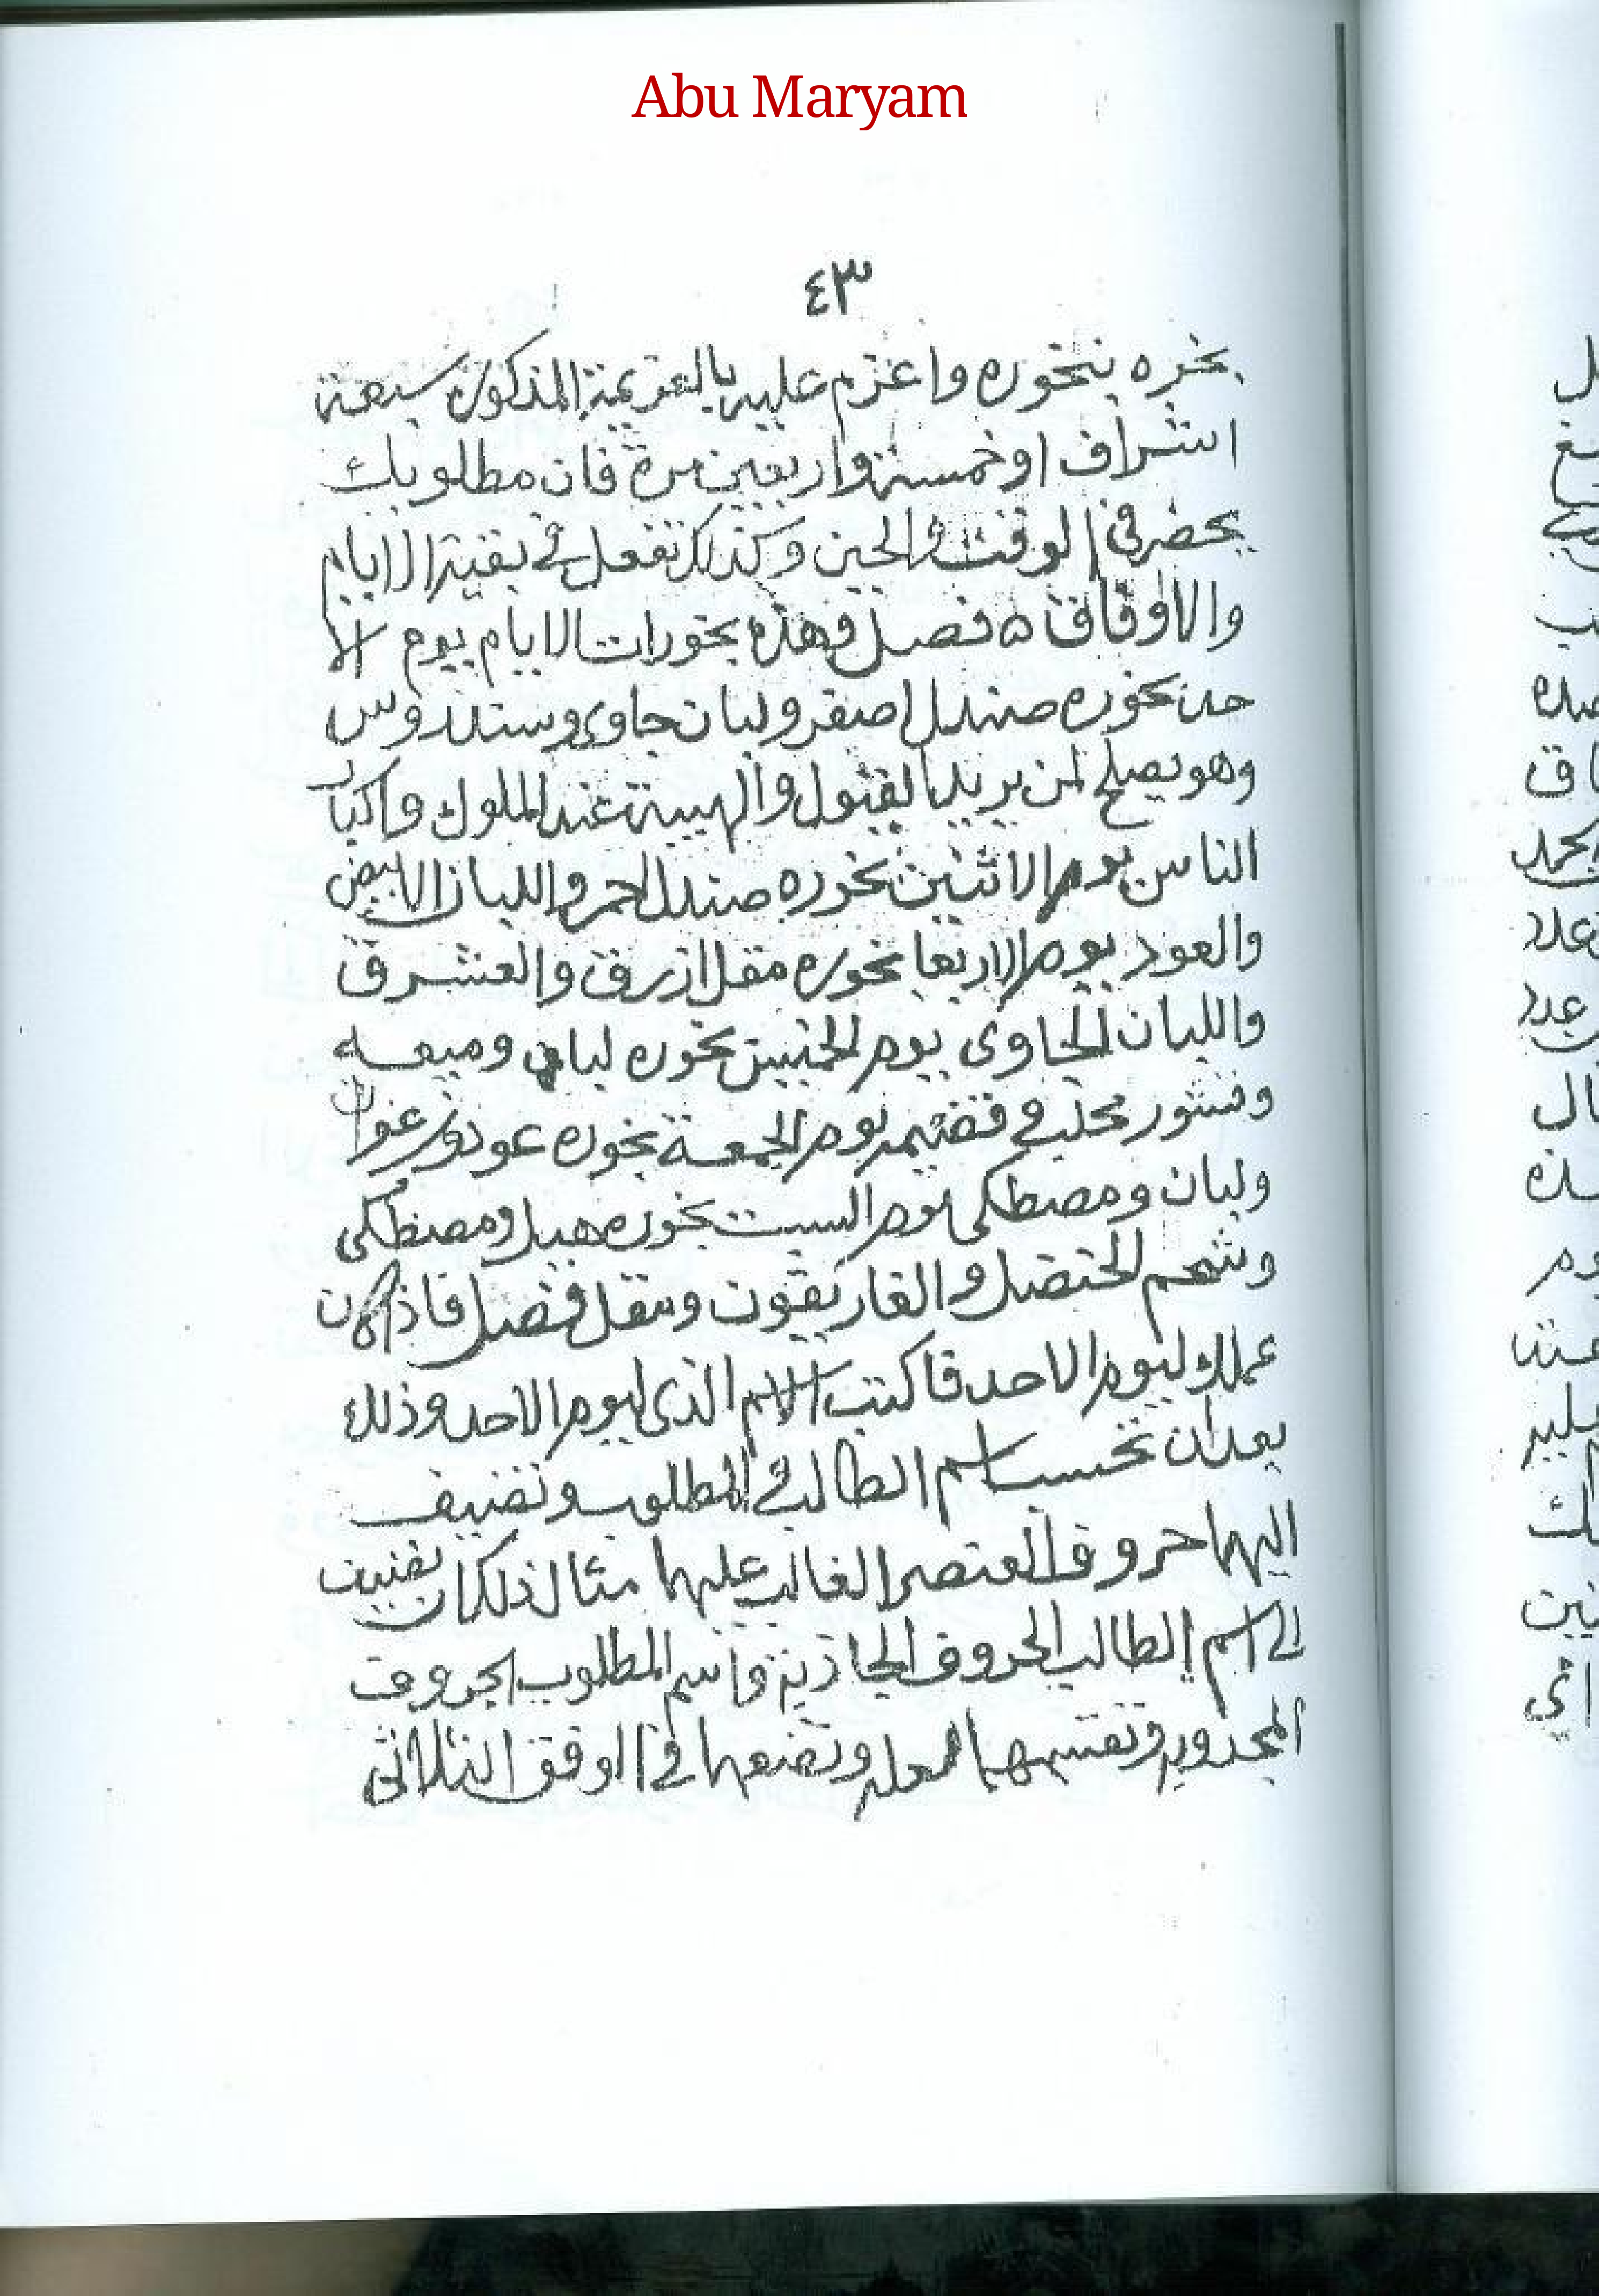 Abu Maryam
٤٣
بخره بنخوره واعزم عليه بالعزيمة المذكورة سبعة
اشراف او خمسة واربعين مرة فان مطلوبك
يحضر في الوقت والحين وكذلك تفعل في بقية الايام
والاوفاق ٥ فصل وهذه بخورات الايام يوم الا
حد بخوره صندل اصفر ولبان جاوى وسندروس
وهو يصلح لمن يريد القبول والهيبة عند الملوك واكبار
الناس يوم الاثنين بخوره صندل احمر واللبان الابيض
والعود يوم الاربعا بخوره مقل ازرق والعشرق
واللبان الجاوى يوم الخميس بخوره لبان وميعه
وقشور محلب يوم الجمعة بخوره عود وزعفران
ولبان ومصطكى يوم السبت بخوره هبيل ومصطكى
وشحم الحنضل والغاريقون ومقل فصل فاذا كان
عملك ليوم الاحد فاكتب الاسم الذى ليوم الاحد وذلك
بعد ان تحسب اسم الطالب في المطلوب وتضيف
اليهما حروف العنصر الغالب عليهما مثال ذلك ان تضيف
الى اسم الطالب الحروف الجاذبة واسم المطلوب الحروف
المجذوبه وتقسمهما وتضعهما في الوفق الثلاثى